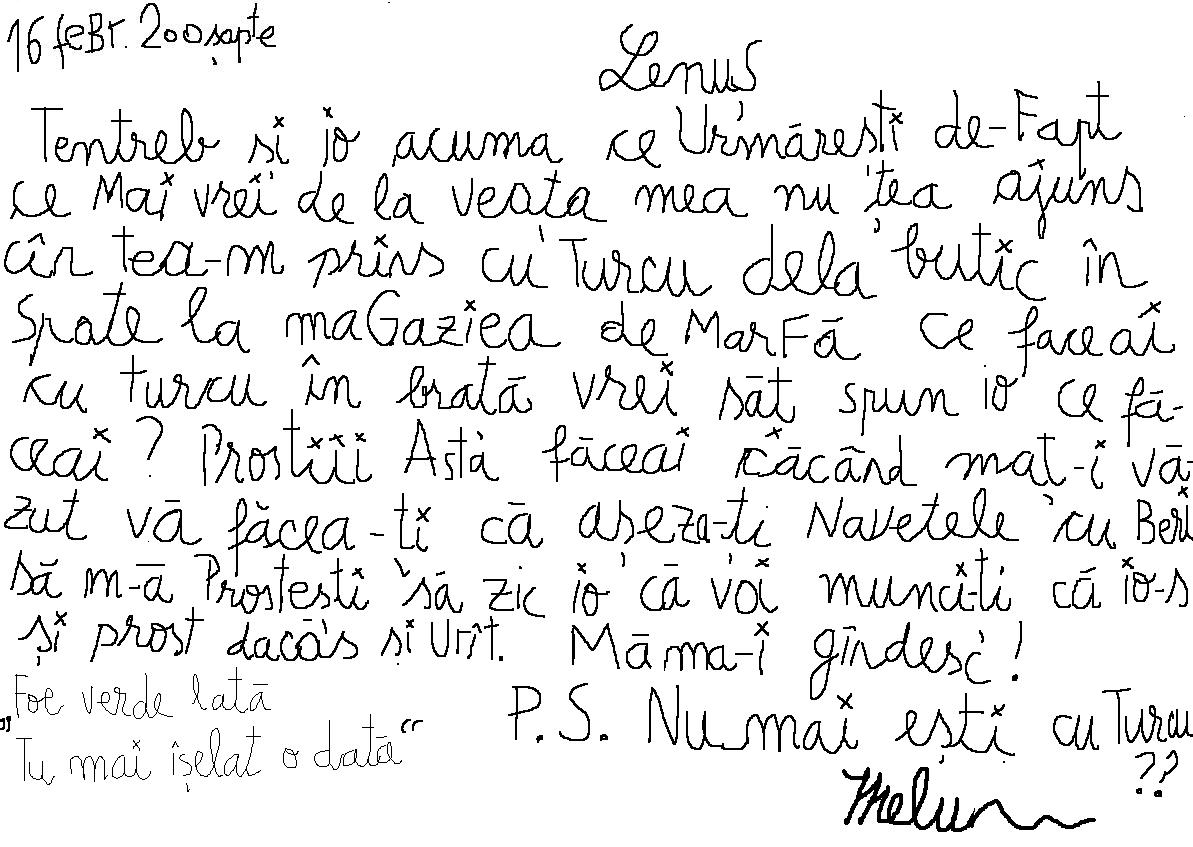 16 feBr. 200șapte
Lenuș
Tentreb și jo acuma ce Urmărești de-Fapt
ce Mai vrei de la veata mea nu țea ajuns
cîn tea-m prins cu Turcu dela butic în
Spate la maGaziea de MarFă ce faceai
cu turcu în brață vrei săt spun io ce fă-
ceai? Prostiii Astà făceai căcând mat-i vă-
zut vă făcea-ti că așeza-ți Navetele cu Beri
să m-ă Prostesti să zic io că voi munci-ti că io-s
și prost dacă's și Urît. Măma-i gîndesc!
Foe verde lată
"Tu mai îșelat o dată"
P.S. Nu mai ești cu Turcu
??
Melu